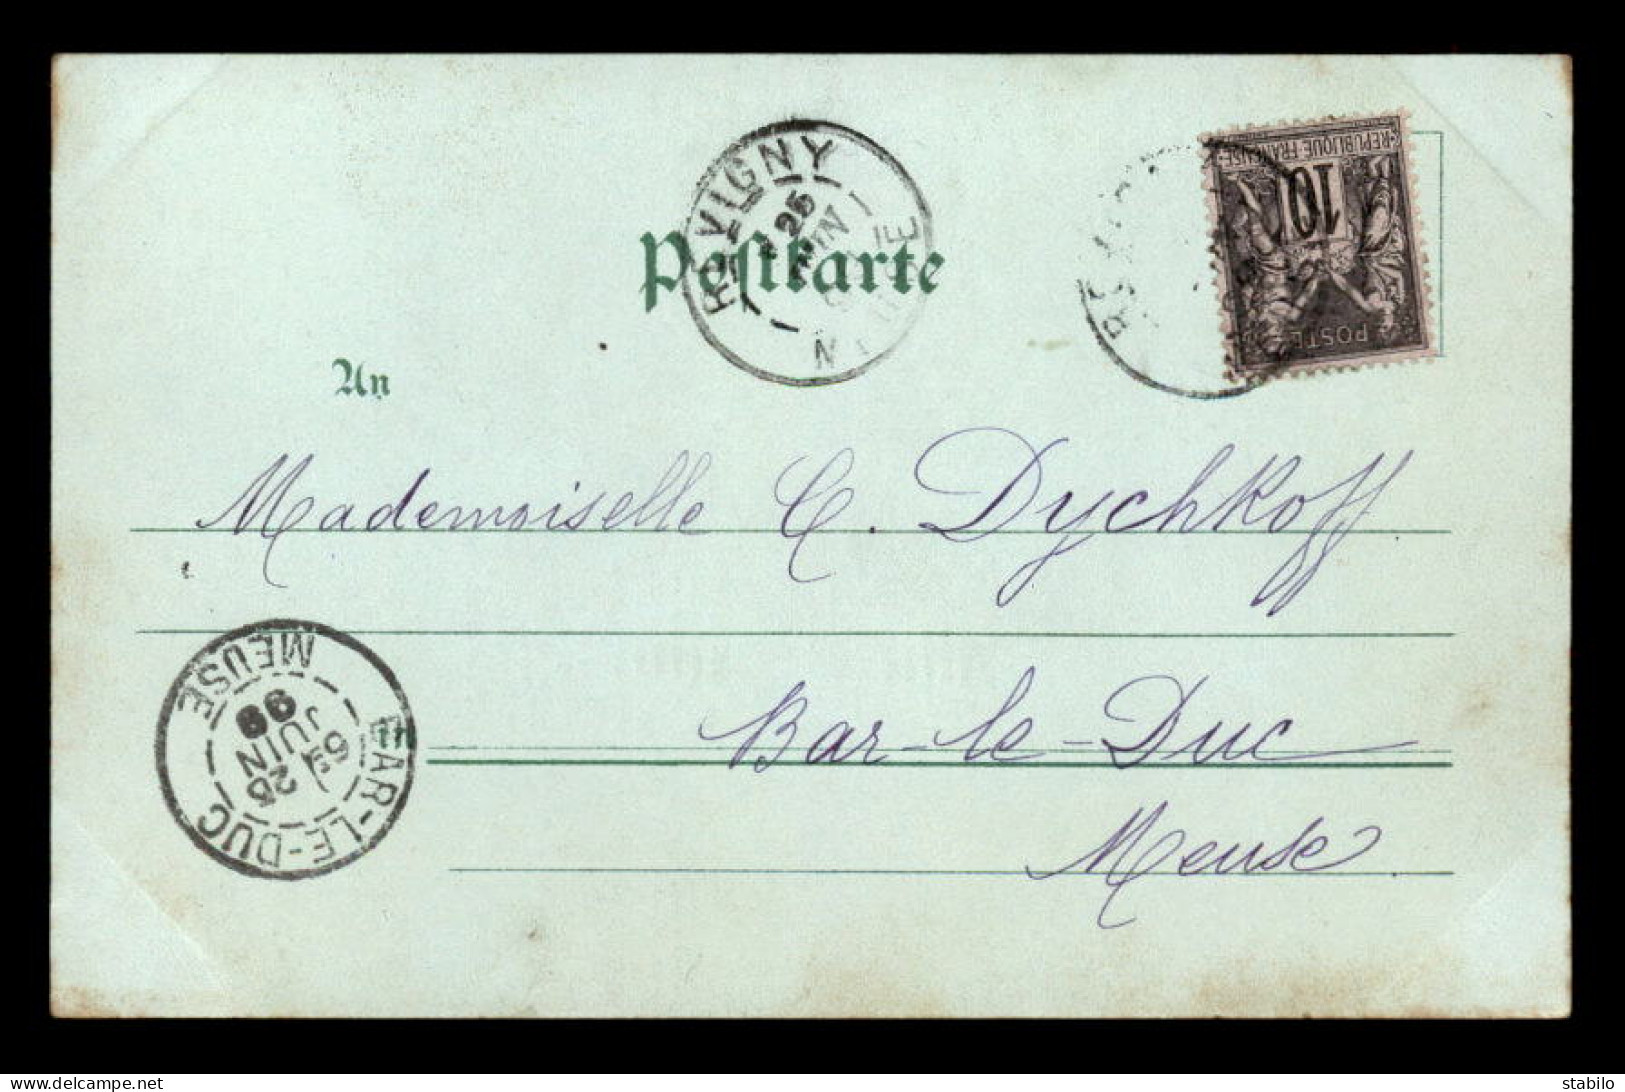 REVIGNY
25
JUIN
Postkarte
REPUBLIQUE FRANÇAISE
10
POSTE
An
Mademoiselle C. Dychkoff
Bar-le-Duc
Meuse.
BAR-LE-DUC
6E
25
JUIN
99
MEUSE
in
stabilo